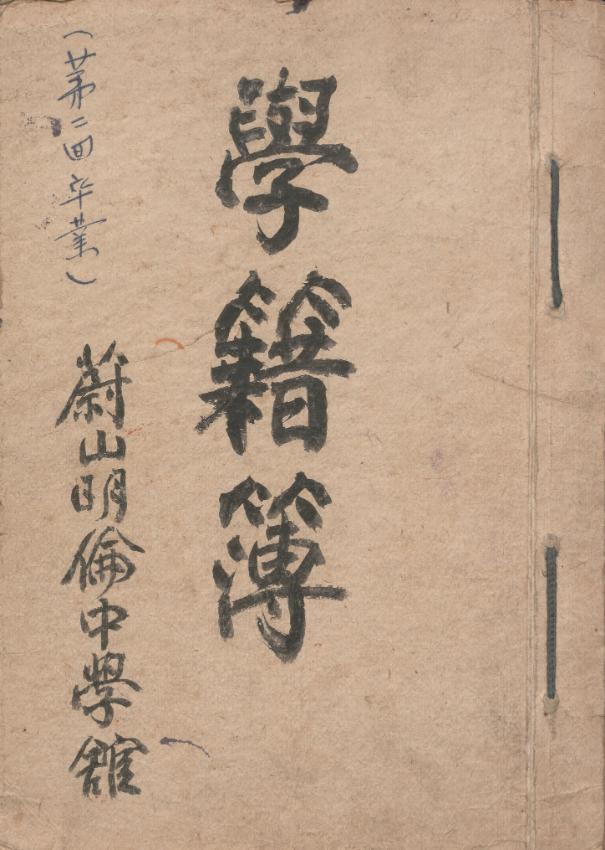 學籍簿
(苐二回卒業)
蔚山明倫中學舘